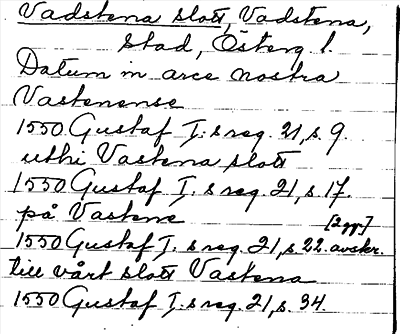 Vadstena slott, Vadstena,
stad, Österg. l.
Datum in arce nostra
Vastenense
1550 Gustaf I:s reg. 21, s. 9.
uthi Vastena slott
1550 Gustaf I:s reg. 21, s. 17.
på Vastene [2 gg.]
1550 Gustaf I:s reg. 21, s. 22. avskr.
till vårt slott Vastena
1550 Gustaf I:s reg. 21, s. 34.